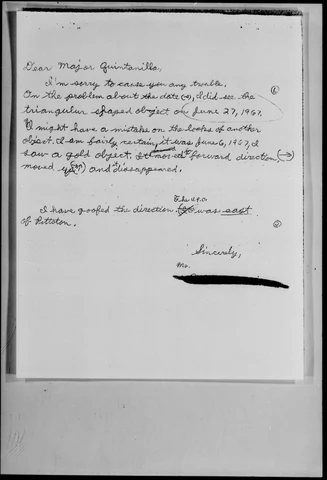 Dear Major Quintanilla,
I'm sorry to cause you any trouble.
On the problem about the date, I did see the
triangular shaped object on June 27, 1967.
I might have a mistake on the looks of another
object. I am fairly certain, it was June 6, 1967, I
saw a gold object, forward direction, (→)
moved up (↑) and disappeared.
The UFO
I have goofed the direction. was east
of Pittston.
Sincerely,